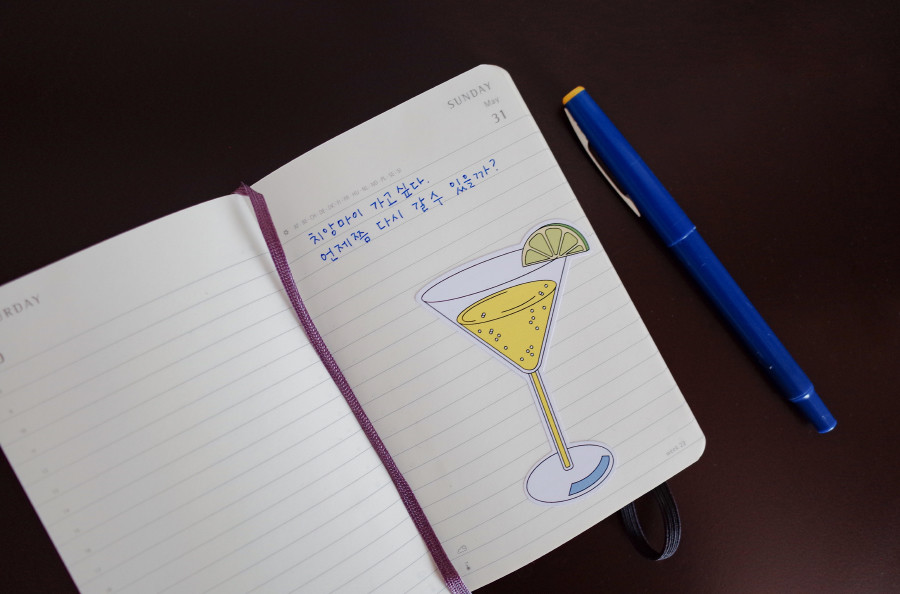 SUNDAY
May
31
치앙마이 가고싶다.
언제쯤 다시 갈 수 있을까?